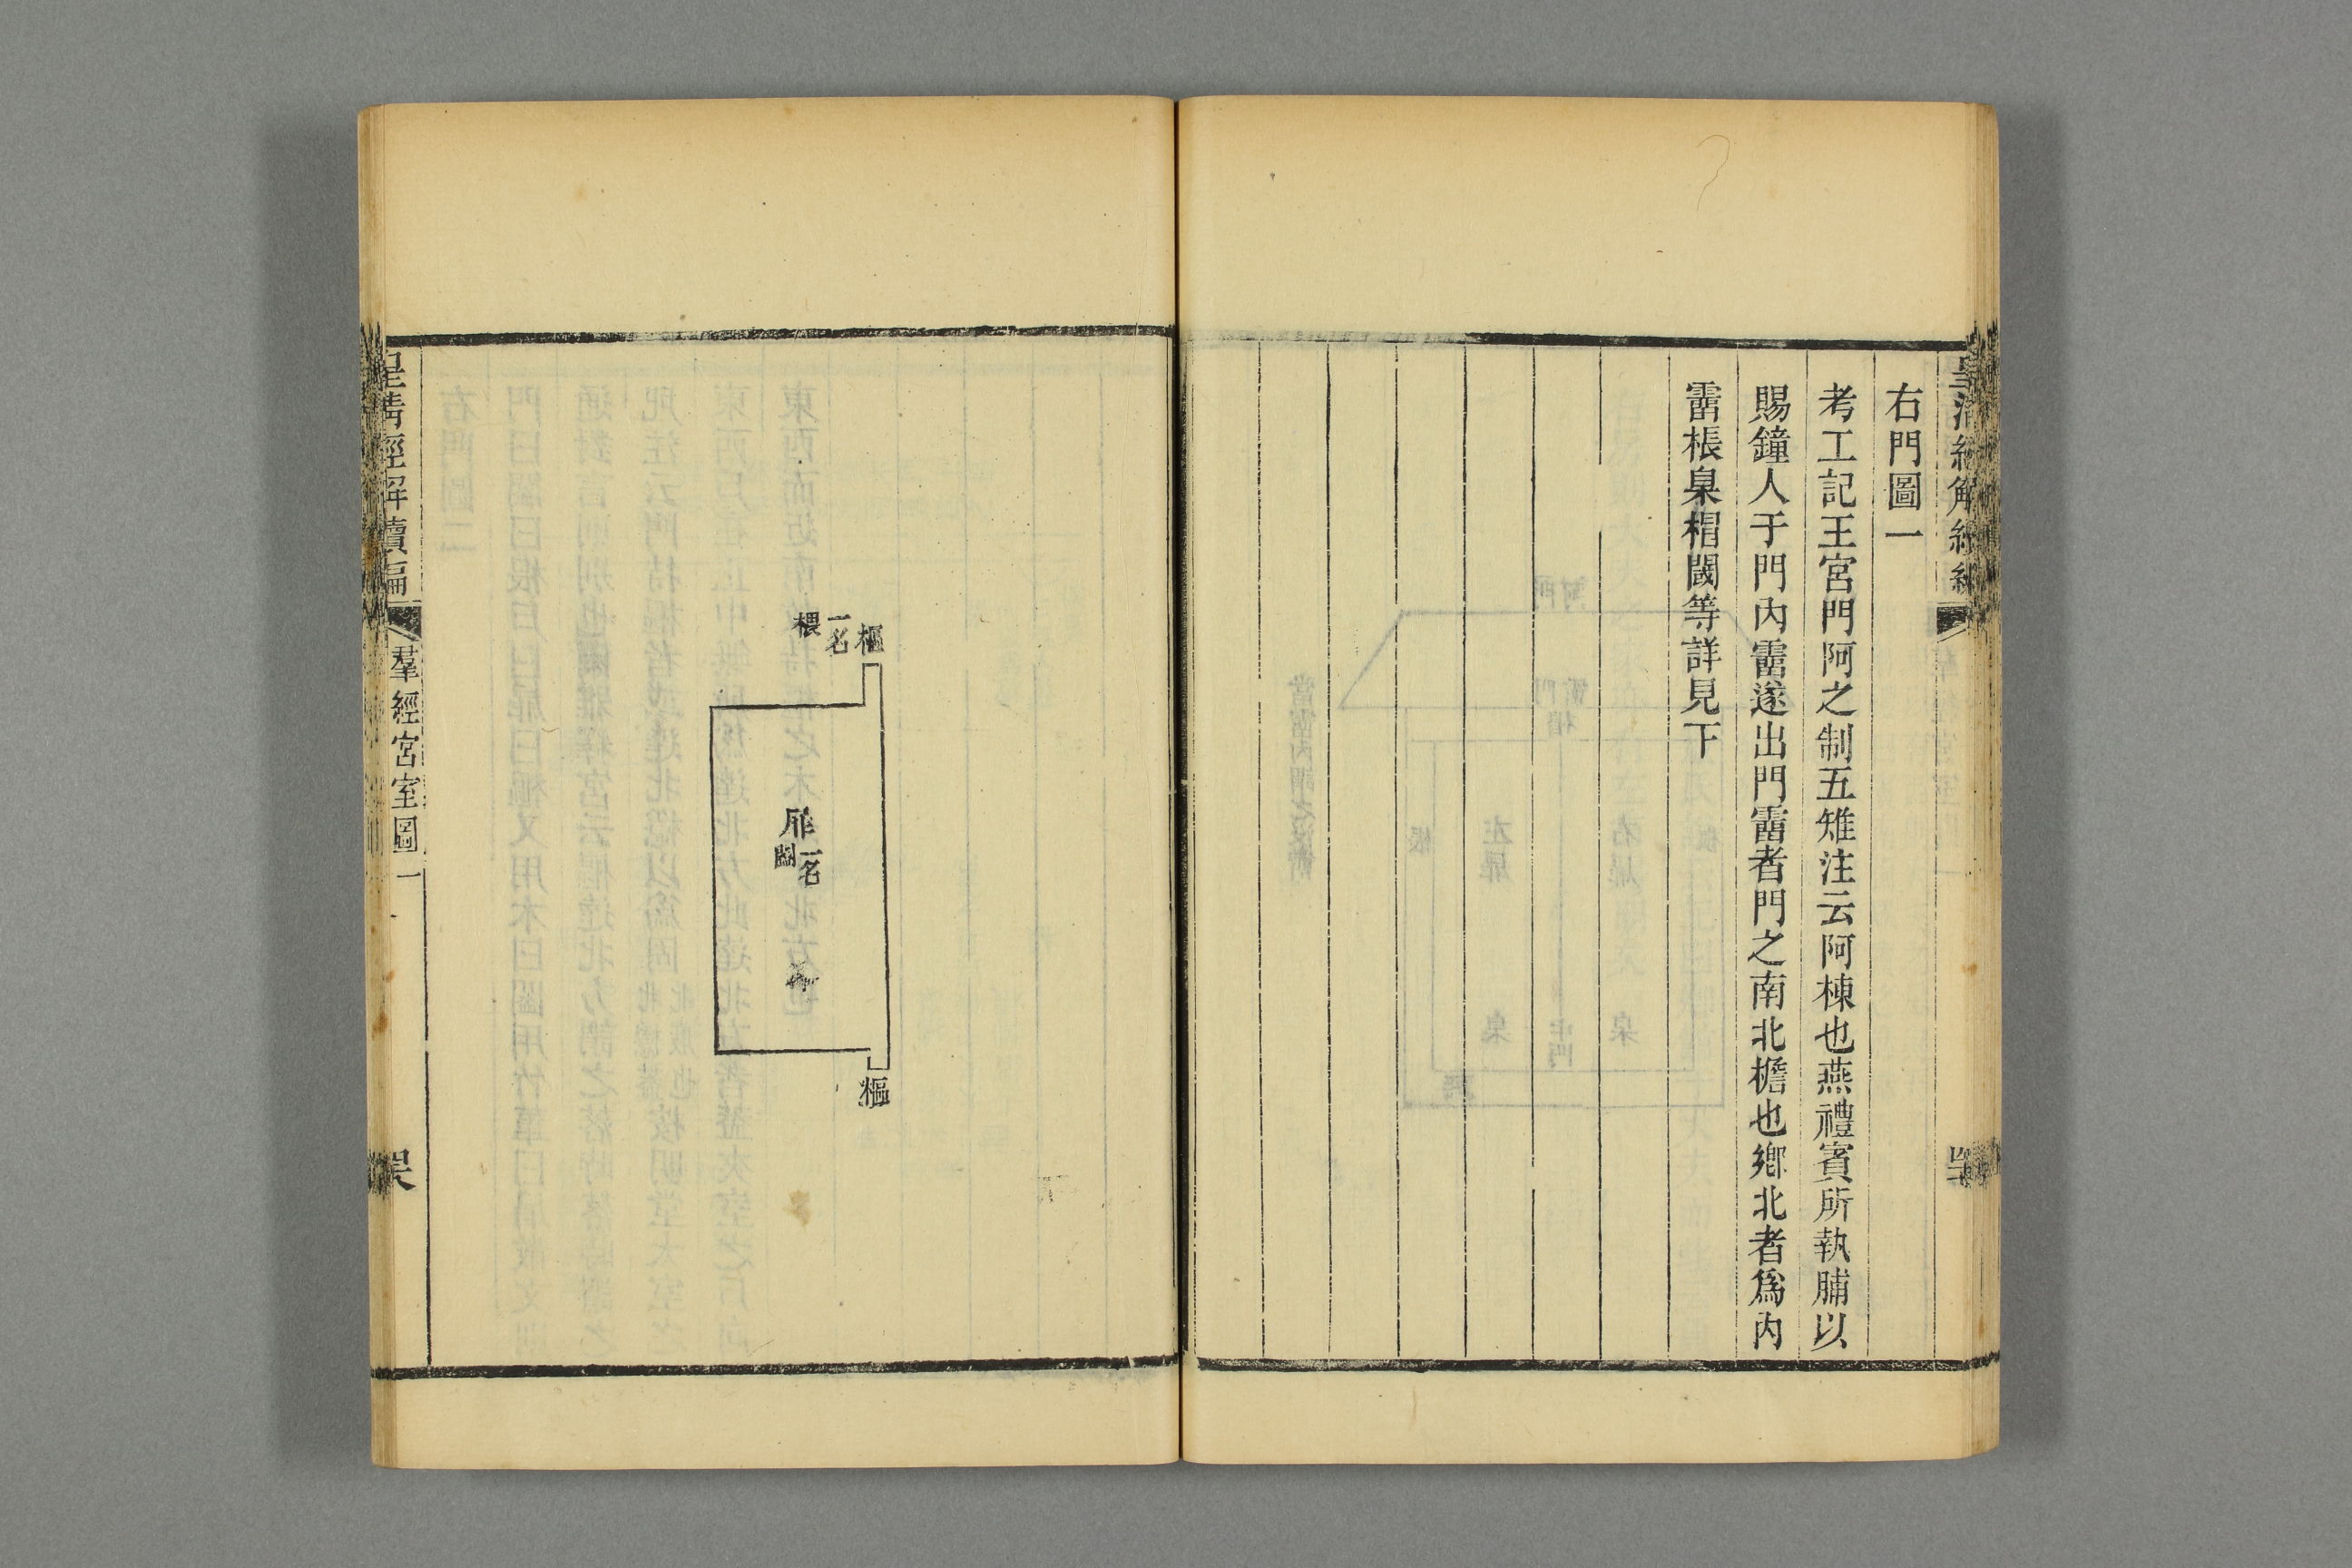 右門圖一
考工記王宮門阿之制五雉注云阿棟也燕禮賓所執脯以
賜鐘人于門內霤遂出門霤者門之南北檐也鄉北者爲內
霤棖臬楣閾等詳見下
樞一名椳
扉一名闔
樞
皇清經解續編
羣經宮室圖一